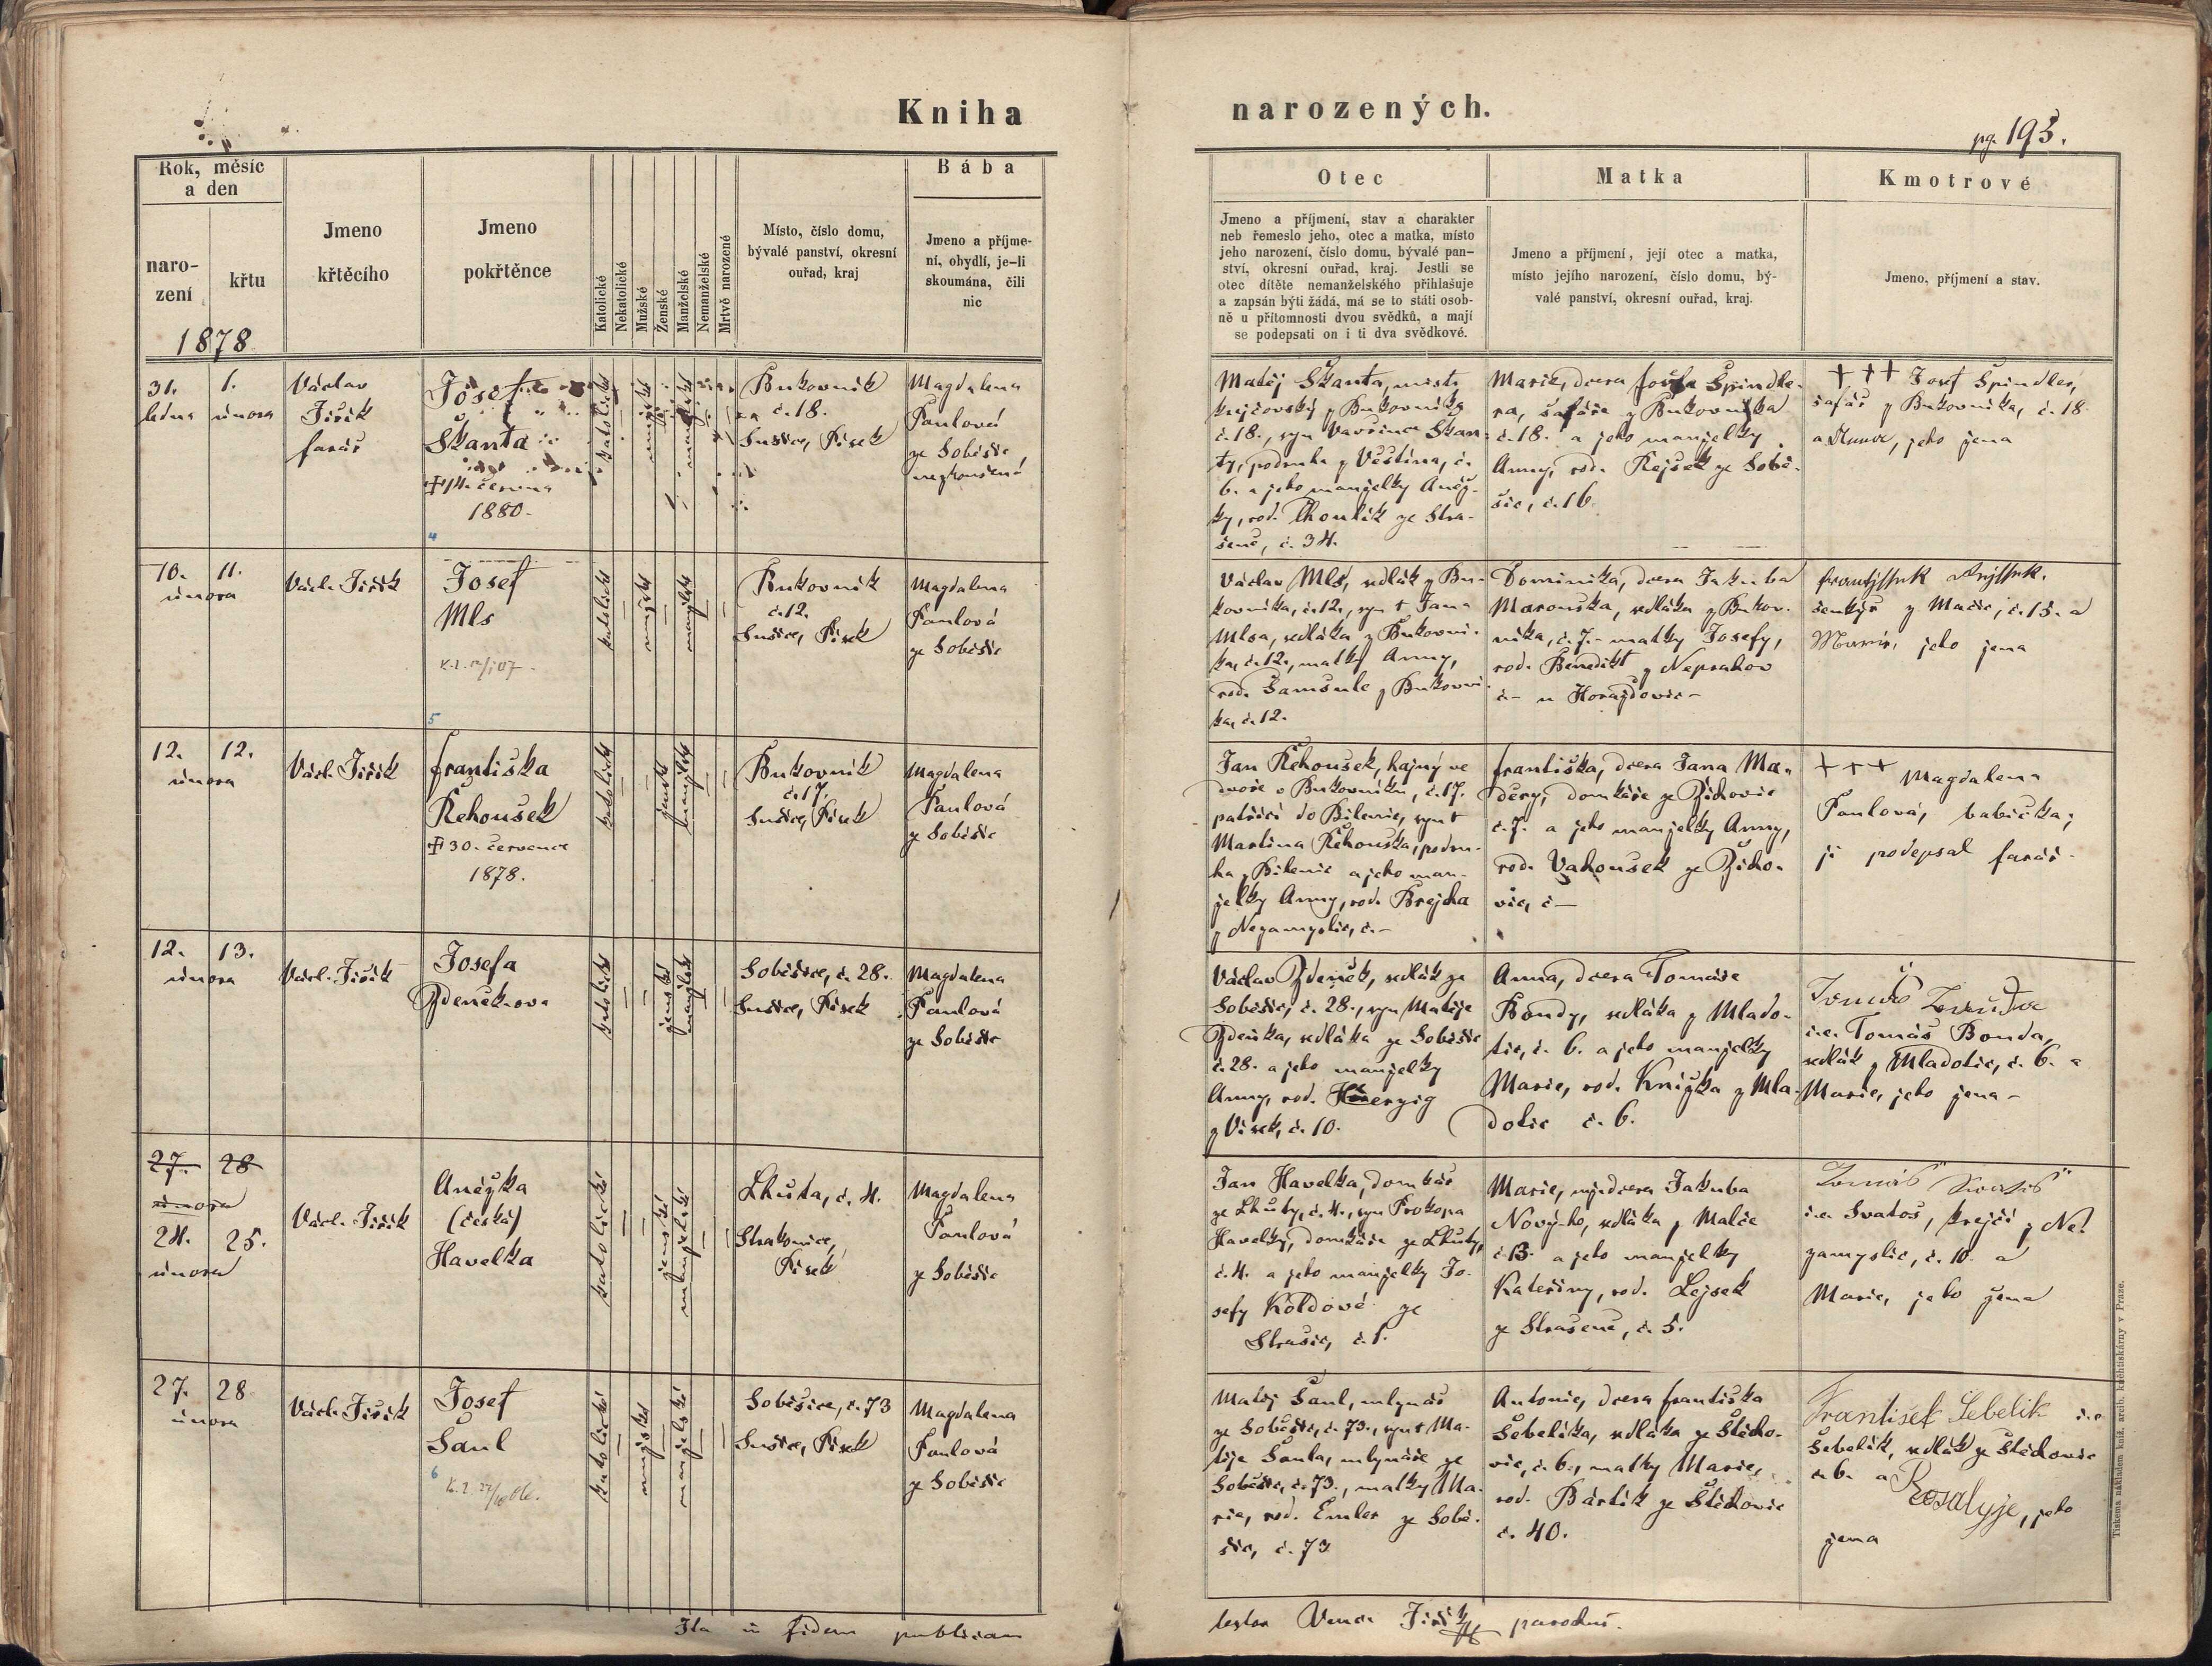 Kniha
narozených.
pg. 193.
Rok, měsíc
a den
naro-
zení
křtu
1878
Jmeno
křtěcího
Jmeno
pokřtěnce
Katolické
Nekatolické
Mužské
Ženské
Manželské
Nemanželské
Mrtvě narozené
Místo, číslo domu,
bývalé panství, okresní
ouřad, kraj
Bába
Jmeno a příjme-
ní, obydlí, je-li
skoumána, čili
nic
Otec
Jmeno a příjmení, stav a charakter
neb řemeslo jeho, otec a matka, místo
jeho narození, číslo domu, bývalé pan-
ství, okresní ouřad, kraj. Jestli se
otec dítěte nemanželského přihlašuje
a zapsán býti žádá, má se to státi osob-
ně u přítomnosti dvou svědků, a mají
se podepsati on i ti dva svědkové.
Matka
Jmeno a příjmení, její otec a matka,
místo jejího narození, číslo domu, bý-
valé panství, okresní ouřad, kraj.
Kmotrové
Jmeno, příjmení a stav.
31.
ledna
1.
února
Václav
Jiřík
farář
Josef
Škanta
† 14. června
1880.
4
katolické
mužské
manželské
Bukovník
č. 18.
Sušice, Písek
Magdalena
Paulová
ze Soběšic,
nezkoušená
Matěj Škanta, mistr
krejčovský z Bukovníka
č. 18., syn Vavřince Škan-
ty, podruha z Věštína, č.
6. a jeho manželky Anež-
ky, rod. Thoulík ze Stra-
šeně, č. 34.
Marie, dcera Josefa Špindle-
ra, šafáře z Bukovníka
č. 18. a jeho manželky
Anny, rod. Rejšek ze Sobě-
šic, č. 16.
+++ Josef Špindler,
šafář z Bukovníka, č. 18
a Anna, jeho žena
10. 11.
února
Václ. Jiřík
Josef
Mls
5
katolické
mužské
manželské
Bukovník
č. 12.
Sušice, Písek
Magdalena
Paulová
ze Soběšic
Václav Mls, sedlák z Bu-
kovníka, č. 12., syn † Jana
Mlsa, sedláka z Bukovní-
ka, č. 12., matky Anny,
rod. Šamšule z Bukovní-
ka, č. 12.
Dominika, dcera Jakuba
Marouška, sedláka z Bukov-
níka, č. 7. - matky Josefy,
rod. Benedikt z Neprahov
č - u Horažďovic -
šenkýř z Mačic, č. 15. a
Marie, jeho žena
12. 12.
února
Václ. Jiřík
Františka
Řehoušek
† 30. července
1878.
katolické
ženské
manželské
Bukovník
č. 17.
Sušice, Písek
Magdalena
Paulová
ze Soběšic
Jan Řehoušek, hajný ve
dvoře v Bukovníku, č. 17.
patřící do Bílenic, syn †
Martina Řehouška, podru-
ha z Bílenic a jeho man-
želky Anny, rod. Brejcha
z Nezamyslic, č. -
Františka, dcera Jana Ma-
děry, domkáře ze Žichovic
č. 7. a jeho manželky Anny,
rod. Vahoušek ze Žicho-
vic, č -
+++ Magdalena
Paulová, babička;
ji podepsal farář.
12. 13.
února
Václ. Jiřík
Josefa
Zdeněk-ova
katolické
ženské
manželské
Soběšice, č. 28.
Sušice, Písek
Magdalena
Paulová
ze Soběšic
Václav Zdeněk, sedlák ze
Soběšic, č. 28., syn Matěje
Zdeňka, sedláka ze Soběšic
č. 28. a jeho manželky
Anny, rod. Herzig
z Vísek, č. 10.
Anna, dcera Tomáše
Bondy, sedláka z Mlado-
tic, č. 6. a jeho manželky
Marie, rod. Knižka z Mla-
dotic č. 6.
i.e. Tomáš Bonda,
sedlák z Mladotic, č. 6. a
Marie, jeho žena -
27. 28
února
24. 25.
února
Václ. Jiřík
Anežka
(česká)
Havelka
katolické
ženské
manželské
Lhůta, č. 4.
Strakonice,
Písek
Magdalena
Paulová
ze Soběšic
Jan Havelka, domkář
ze Lhůty, č. 4., syn Prokopa
Havelky, domkáře ze Lhůty,
č. 4. a jeho manželky Jo-
sefy Koldové ze
Strašic, č. 1.
Marie, dcera Jakuba
Nový-ho, sedláka z Malče
č. 13 a jeho manželky
Kateřiny, rod. Lejsek
ze Strašeně, č. 5.
Tomáš Svatoš
i.e. Svatoš, krejčí z Ne-
zamyslic, č. 10. a
Marie, jeho žena
27. 28
února
Václ. Jiřík
Josef
Šaul
6
katolické
mužské
manželské
Soběšice, č. 73
Sušice, Písek
Magdalena
Paulová
ze Soběšic
Matěj Šaul, mlynář
ze Soběšic, č. 73., syn † Ma-
těje Šaula, mlynáře ze
Soběšic, č. 73., matky Ma-
rie, rod. Emler ze Sobě-
šic, č. 73
Antonie, dcera Františka
Šebelíka, sedláka ze Štěcho-
vic, č. 6., matky Marie,
rod. Bárlík ze Štěchovic
č. 40.
František Šebelik i.e.
Šebelík, sedlák ze Štěchovic
č. 6. a Rosalyje, jeho
žena
Ita in fidem publicam
testor Venc. Jiřík parochus.
Tiskem a nákladem kníž. arcib. knihtiskárny v Praze.